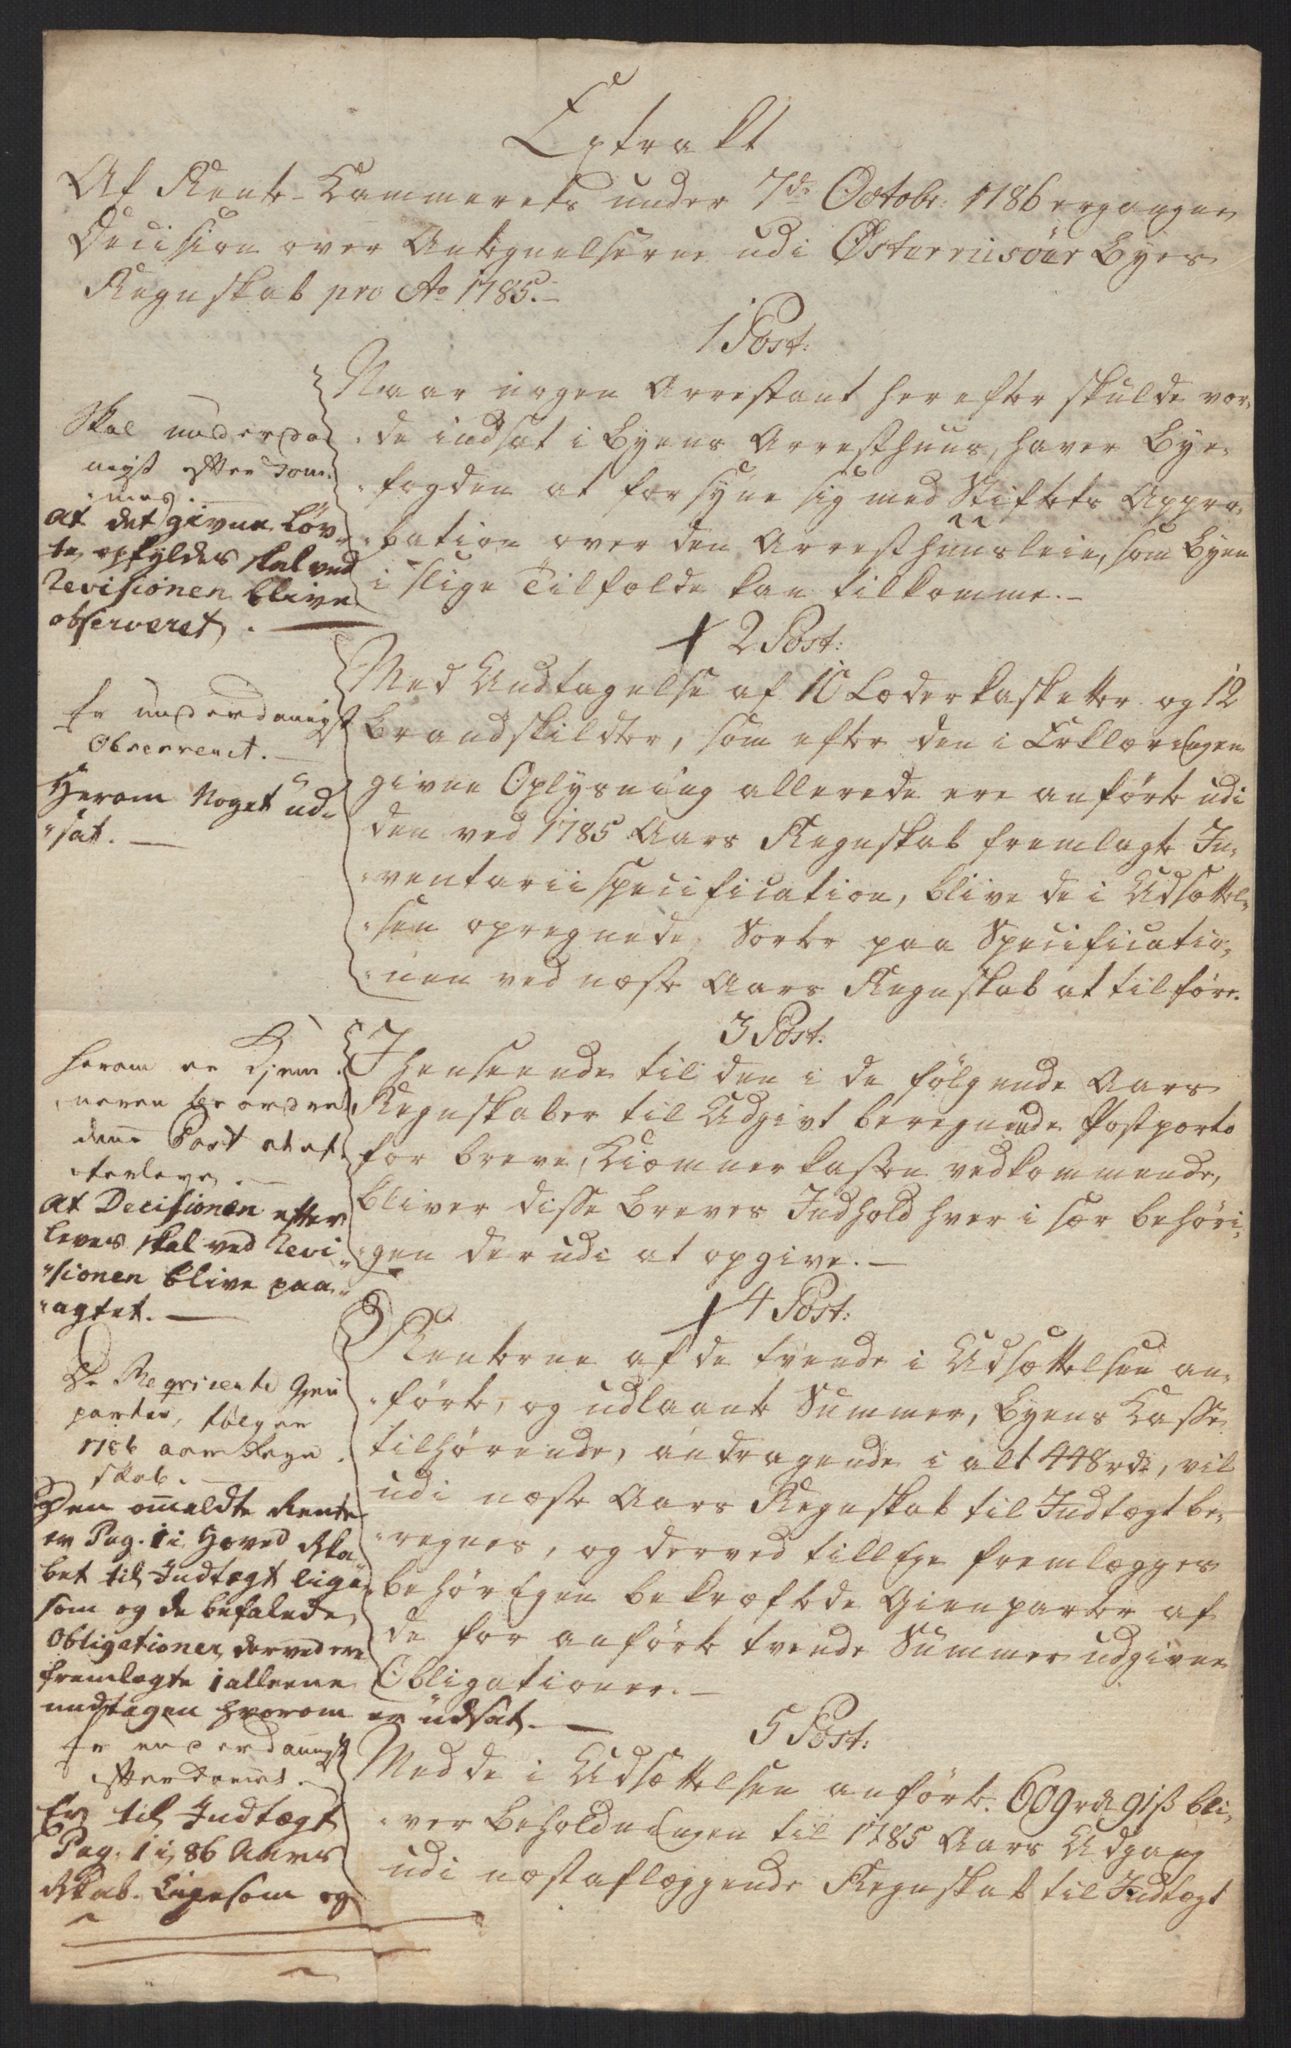 Extrakt
Af Rente-Cammerets under 7de Octobr: 1786 ergangne
Decision over Antegnelserne udi Østerriisöer Byes
Regnskab pro Ao 1785.-
1 Post:
Naar nogen Arrestant herefter skulde vor,
de indsat i Byens Arresthuus, haver Bye,
fogden at forsyne sig med Stiftets Appro,
bation over den Arresthuusleie, som Byen
i slige Tilfælde kan tilkomme.-
Skal underda
nigst efterkom,
mes.-
At det givne Løv-
te, opfyldes skal ved
Revisionen blive
observeret.
2 Post:
Med Undtagelse af 10 Læderkasketter og 12
Brandskildter, som efter den i Erklæringen
givne Oplysning allerede ere anførte udi
den ved 1785 Aars Regnskab fremlagte In,
ventarii specification, blive de i Udsættel,
sen opregnede Sorter paa Specificatio,
nen ved næste Aars Regnskab at tilføre.
Er underdanigst
Observeret.-
Herom Noget ud-
sat.-
3 Post.
I henseende til den i de følgende Aars
Regnskaber til Udgivt beregnende Postporto
for breve, Kiæmnerkassen vedkommende,
bliver disse Breves Indhold hver i sær behöri,
gen derudi at opgive.-
herom er Kjem
neren beordret
denne Post at ef-
terleve.-
At Decisionen efter
leves skal ved Revi
sionen blive paa
agtet.-
4 Post:
Renterne af de tvende i Udsættelsen an,
førte, og udlaante Summer, Byens Casse
tilhørende, andragende i alt 448 rdr, vil
udi næste Aars Regnskab til Indtægt be,
regnes, og derved tillige fremlægges
behørigen bekræftede Gienparter af
de for anførte tvende Summer udgivne
Obligationer.-
De Reqvirerte Gien
parter, følger
1786 aars Regn
skab.
Den ommeldte Rente
er Pag. 1 i Hoved Ska
bet til Indtægt lige
som og de befalede
Obligationer, derved ere
fremlagte i alleene
undtagen hvorom er udsat.-
5 Post:
Med de i Udsættelsen anførte 609 rdr 91 ß bli,
ver Beholdningen til 1785 Aars Udgang
udi næstaflæggende Regnskab til Indtægt
Er underdanigst
efterkomet.-
Er til Indtægt
Pag. 1 i 86 Aars
Skab. Ligesom og